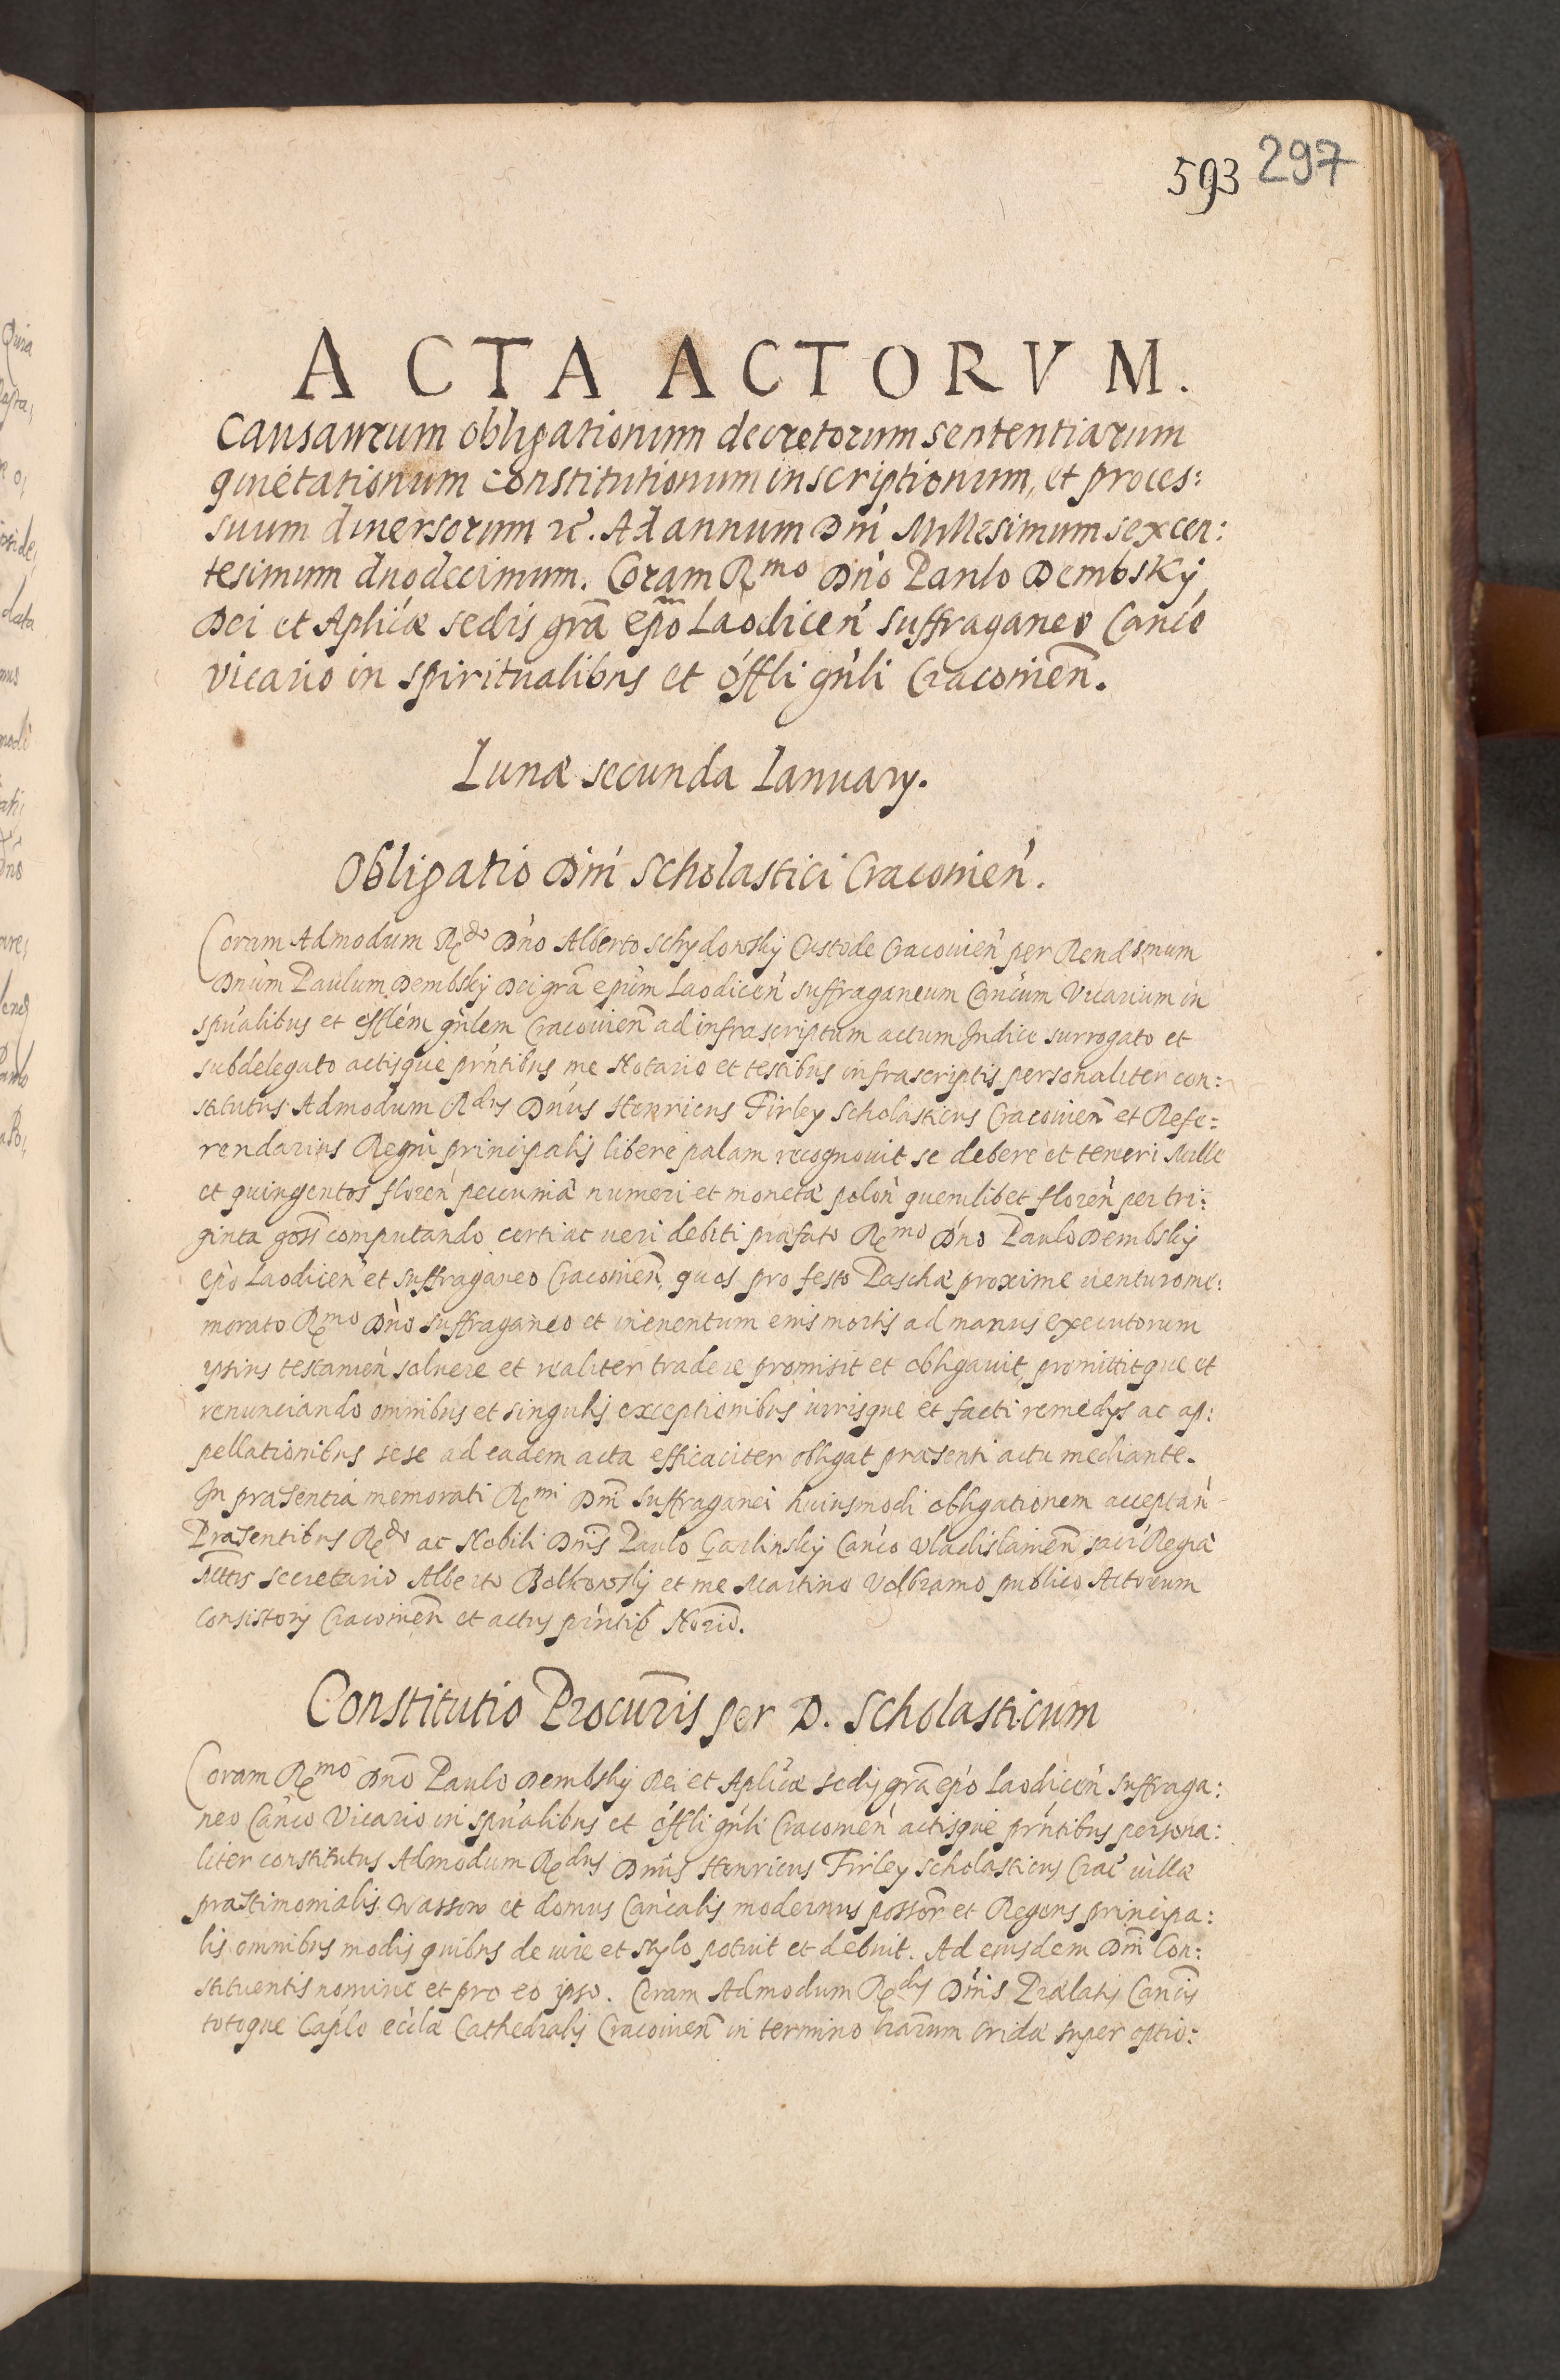 593 297
ACTA ACTORVM.
Causarum obligationum decretorum sententiarum
quietationum constitutionum inscriptionum, et proces:
suum diuersorum ꝛc̄. Ad annum Dni Millesimum sexcen:
tesimum duodecimum. Coram Rmo Dno Paulo Dembskÿ
Dei et Aplicæ sedis grā epō Laodicen suffraganeo Canco
vicario in spiritualibus et offli gnli Cracouien̄.
Lunæ secunda Ianuarÿ.
Obligatio Dni Scholastici Cracouien.
Coram Admodum Rdo Dno Alberto Schydowskÿ Custode Cracouien per Rendsmum
Dnum Paulum Dembskÿ Dei grā epum Laodicen suffraganeum Cancum Vicarium in
spualibus et offlem gnlem Cracouien̄ ad infrascriptum actum Iudice surrogato et
subdelegato actisque prntibus me Notario et testibus infrascriptis personaliter con:
stitutus Admodum Rdus Dnus Henricus Firleÿ Scholasticus Cracouien̄ et Refe:
rendarius Regni principalis libere palam recognouit se debere et teneri Mille
et quingentos floren pecuniæ numeri et monetæ polon quemlibet floren per tri:
ginta gross computando certi ac ueri debiti præfato Rmo Dno Paulo Dembskÿ
epo Laodicen et suffraganeo Cracouien̄, quos pro festo Paschæ proxime uenturo me:
morato Rmo Dno suffraganeo et in euentum eius mortis ad manus executorum
ipsius testamen soluere et realiter tradere promisit et obligauit, promittitque et
renunciando omnibus et singulis exceptionibus iurisque et facti remedÿs ac ap:
pellationibus sese ad eadem acta efficaciter obligat præsenti actu mediante.
In præsentia memorati Rmi Dni suffraganei huiusmodi obligationem acceptan
Præsentibus Rdo ac Nobili Dnis Paulo Garlinskÿ Canco Vladislauien̄ sacræ Regiæ
Mttis secretario Alberto Bolkowskÿ et me Martino Volbramo publico Actorum
Consistorÿ Cracouien̄ et actus pntib Norio.
Constitutio Procuris per D. Scholasticum
Coram Rmo Dno Paulo Dembskÿ Dei et Aplicæ sedis grā epo Laodicen suffraga:
neo Canco Vicario in spualibus et offli gnli Cracouien actisque prntibus persona:
liter constitutus Admodum Rdus Dnus Henricus Firleÿ Scholasticus Crac uillæ
præstimonialis Wassow et domus Cancalis modernus possor et Regens principa:
lis omnibus modis quibus de iure et stylo potuit et debuit. Ad eiusdem Dni Con:
stituentis nomine et pro eo ipso. Coram Admodum Rdis Dnis Prælatis Cancis
totoque Caplo eccæ Cathedralis Cracouien̄ in termino harum cridæ super optio: